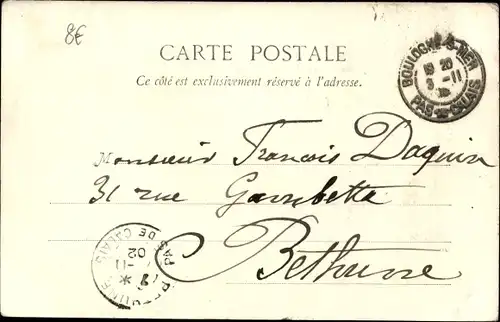 8€
CARTE POSTALE
Ce côté est exclusivement réservé à l'adresse.
BOULOGNE-S-MER
20
3 -11
PAS-DE-CALAIS
Monsieur Francois Daquin
31 rue Gambetta
Bethune
PAS DE CALAIS
-11
02